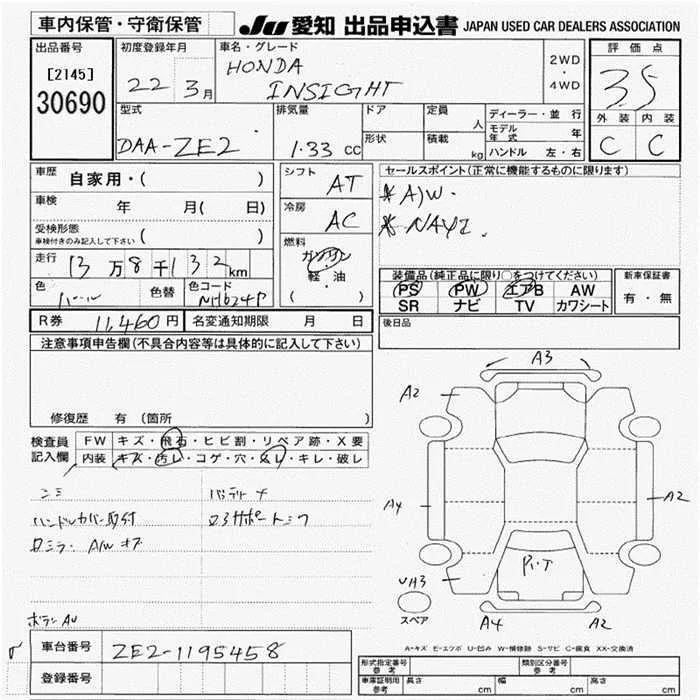 車内保管・守衛保管
JU 愛知 出品申込書 JAPAN USED CAR DEALERS ASSOCIATION
出品番号
[2145]
30690
初度登録年月
22 3月
車名・グレード
HONDA
INSIGHT
2WD
・
4WD
評価点
3.5
外装 内装
C C
型式
DAA-ZE2
排気量
1.33 CC
ドア
形状
定員 人
積載 kg
ディーラー・並行
モデル年式 年
ハンドル 左・右
車歴 自家用・( )
車検 年 月( 日)
受検形態
車検付きのみ記入して下さい ( )
走行 13万8千132km
色 パール 色替 色コード NH624P
シフト AT
冷房 AC
燃料
ガソリン
・
軽・油
( )
セールスポイント(正常に機能するものに限ります)
*A/W.
装備品(純正品に限り○をつけてください)
PS PW エアB AW
SR ナビ TV カワシート
新車保証書
有・無
R券 11,460円 名変通知期限 月 日
後日品
注意事項申告欄(不具合内容等は具体的に記入して下さい)
修復歴 有(箇所
検査員記入欄
FW キズ・飛石・ヒビ割・リペア跡・X要
内装 キズ・汚レ・コゲ・穴・スレ・キレ・破レ
バッテリー ナ
ハンドルカバー取付
A3
A2
A4
A2
A4
A2
スペア
A-キズ E-エクボ U-凹み W-補修跡 S-サビ C-腐食 XX-交換済
車台番号 ZE2-1195458
登録番号
形式指定番号 参考
類別区分番号 参考
車庫証明用 参考 長さ cm 幅 cm 高さ cm